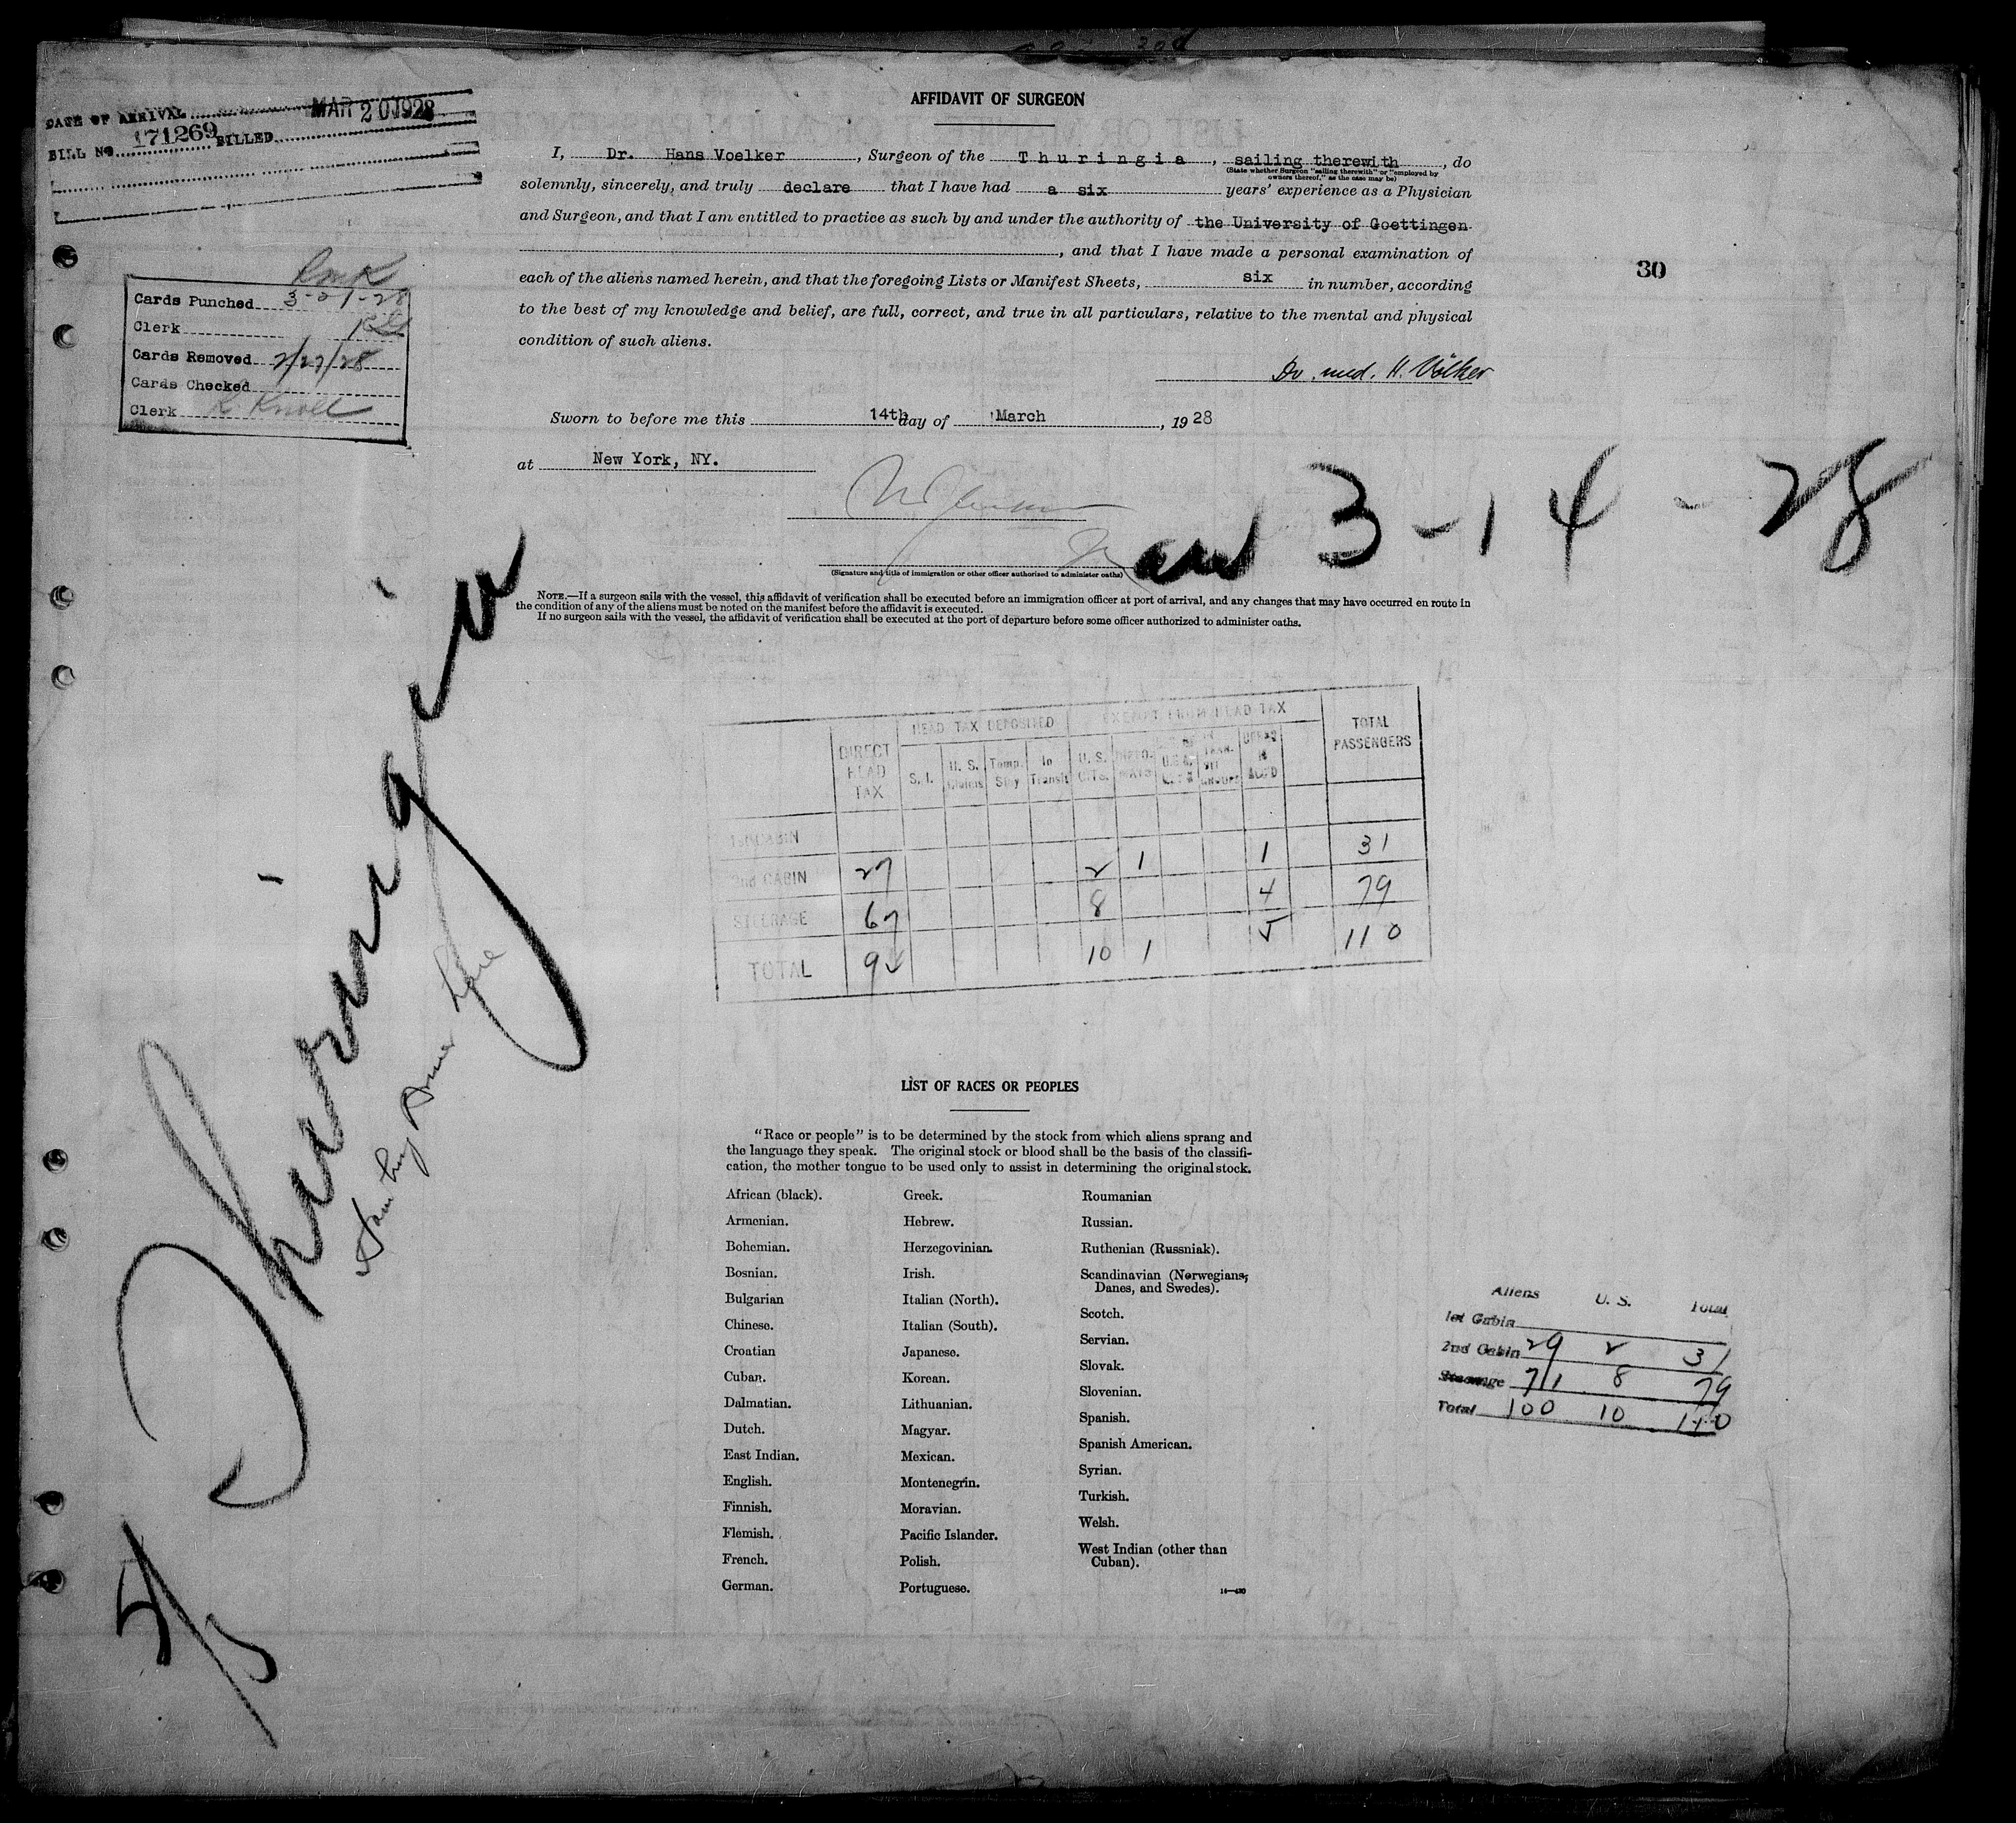 AFFIDAVIT OF SURGEON
DATE OF ARRIVAL MAR 20 1928
BILL NO. 171269 BILLED
I, Dr. Hans Voelker, Surgeon of the Thuringia, sailing therewith, do
(State whether Surgeon "sailing therewith" or "employed by
owners thereof," as the case may be)
solemnly, sincerely, and truly declare that I have had a six years' experience as a Physician
and Surgeon, and that I am entitled to practice as such by and under the authority of the University of Goettingen
, and that I have made a personal examination of
each of the aliens named herein, and that the foregoing Lists or Manifest Sheets, six in number, according
to the best of my knowledge and belief, are full, correct, and true in all particulars, relative to the mental and physical
condition of such aliens.
Dr. med. H. Völker
30
Cards Punched 3-21-28
Clerk
Cards Removed 2/27/28
Cards Checked
Clerk R. Knoll
Sworn to before me this 14th day of March, 1928
at New York, NY.
3-14-28
(Signature and title of immigration or other officer authorized to administer oaths)
NOTE.—If a surgeon sails with the vessel, this affidavit of verification shall be executed before an immigration officer at port of arrival, and any changes that may have occurred en route in
the condition of any of the aliens must be noted on the manifest before the affidavit is executed.
If no surgeon sails with the vessel, the affidavit of verification shall be executed at the port of departure before some officer authorized to administer oaths.
Thuringia
Hamburg Amer Line
HEAD TAX DEPOSITED EXEMPT FROM HEAD TAX
DIRECT HEAD TAX S. I. U. S. Claims Temp. Stay In Transit U. S. CITS. TOTAL PASSENGERS
1st CABIN
2nd CABIN 27 2 1 1 31
STEERAGE 67 8 4 79
TOTAL 94 10 1 5 110
LIST OF RACES OR PEOPLES
"Race or people" is to be determined by the stock from which aliens sprang and
the language they speak. The original stock or blood shall be the basis of the classifi-
cation, the mother tongue to be used only to assist in determining the original stock.
African (black).
Armenian.
Bohemian.
Bosnian.
Bulgarian
Chinese.
Croatian
Cuban.
Dalmatian.
Dutch.
East Indian.
English.
Finnish.
Flemish.
French.
German.
Greek.
Hebrew.
Herzegovinian.
Irish.
Italian (North).
Italian (South).
Japanese.
Korean.
Lithuanian.
Magyar.
Mexican.
Montenegrin.
Moravian.
Pacific Islander.
Polish.
Portuguese.
Roumanian
Russian.
Ruthenian (Russniak).
Scandinavian (Norwegians,
Danes, and Swedes).
Scotch.
Servian.
Slovak.
Slovenian.
Spanish.
Spanish American.
Syrian.
Turkish.
Welsh.
West Indian (other than
Cuban).
14—430
Aliens U. S. Total
1st Cabin
2nd Cabin 29 2 31
Steerage 71 8 79
Total 100 10 110